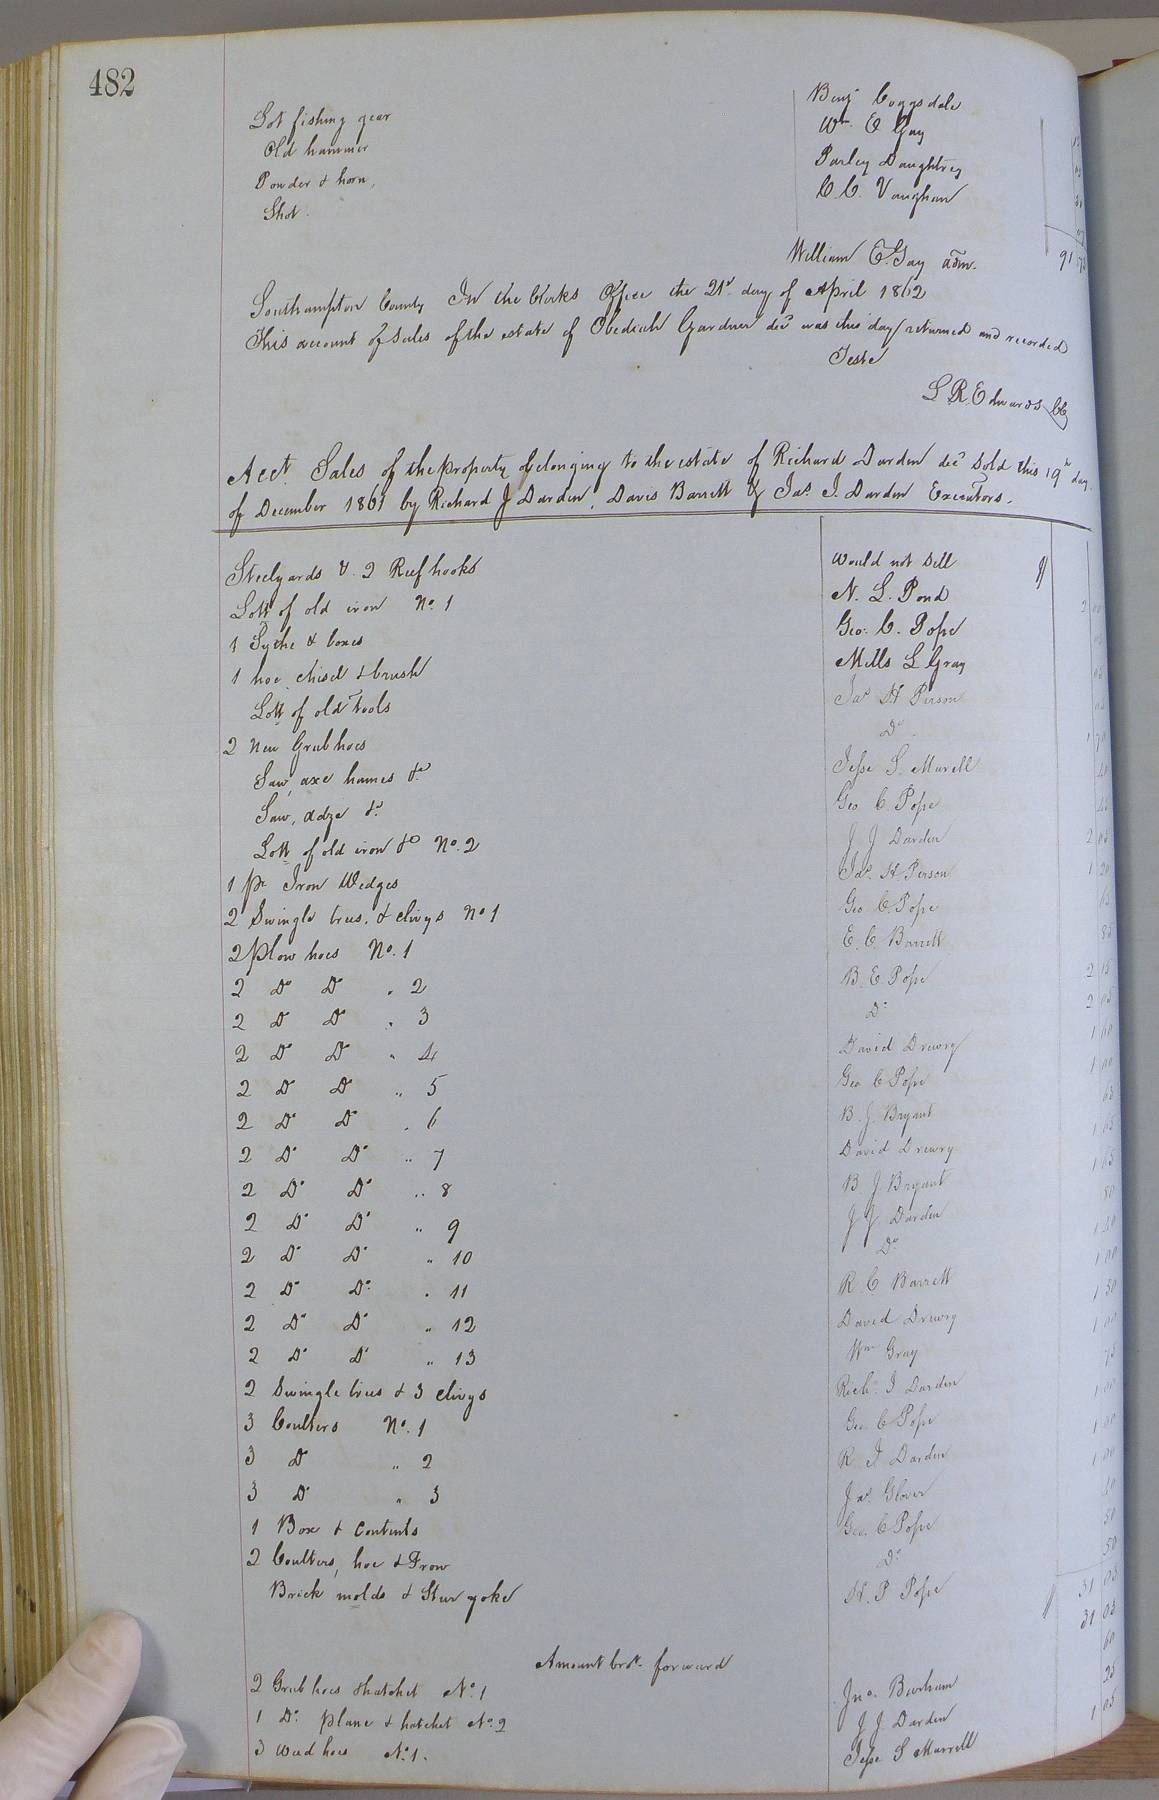 482
Lot fishing gear Benj Coggsdale
Old hammer Wm E Gay
Powder & horn, Parley Daughtrey
Shot. C. C. Vaughan
William E. Gay adm. 91
Southampton County In the Clerks Office the 21st day of April 1862
This account of Sales of the estate of Obediah Gardner decd was this day returned and recorded
Teste
L R Edwards CC
Acct. Sales of the property belonging to the estate of Richard Darden decd sold this 19th day
of December 1861 by Richard J Darden, Davis Barrett & Jas. J. Darden Executors.
Steelyards & 2 Reef hooks Would not sell
Lott of old iron No. 1 N. L. Pond 2 00
1 Sythe & boxes Geo. C. Pope
1 hoe chisel & brush Mills L Gray
Lott of old tools Jas H Person
2 New Grub hoes Do 1 70
Saw, axe hames &c Jesse S. Murell
Saw, adze &c Geo C Pope
Lott of old iron &c No. 2 J J Darden 2
1 pr Iron Wedges Jas. H Person 1 20
2 Swingle trees. & clivys No 1 Geo C. Pope
2 Plow hoes No. 1 E. C. Barrett 85
2 Do Do " 2 B. E. Pope 2 15
2 Do Do " 3 Do 2 05
2 Do Do " 4 David Drewry 1 00
2 Do Do " 5 Geo C Pope 1 00
2 Do Do " 6 B. J. Bryant 65
2 Do Do " 7 David Drewry 1 65
2 Do Do " 8 B J Bryant 1 65
2 Do Do " 9 J J Darden 80
2 Do Do " 10 Do 1 40
2 Do Do " 11 R. C Barrett 1 00
2 Do Do " 12 David Drewry 1 50
2 Do Do " 13 Wm Gray 1 00
2 Swingle trees & 3 clivys Richd. J Darden 75
3 Coulters No. 1 Geo. C Pope 1 00
3 Do " 2 R. J Darden 1 00
3 Do " 3 Jas. Glover 1 00
1 Box & Contents Geo. C Pope 40
2 Coulters, hoe & Frow Do 50
Brick molds & Steer yoke H. P Pope 50
31 03
Amount brot. forward 31 03
2 Grub hoes & hatchet No. 1 Jno. Barham 60
1 Do. plane & hatchet No. 2 J J. Darden 25
3 Weed hoes No. 1. Jesse S Murrell 1 05